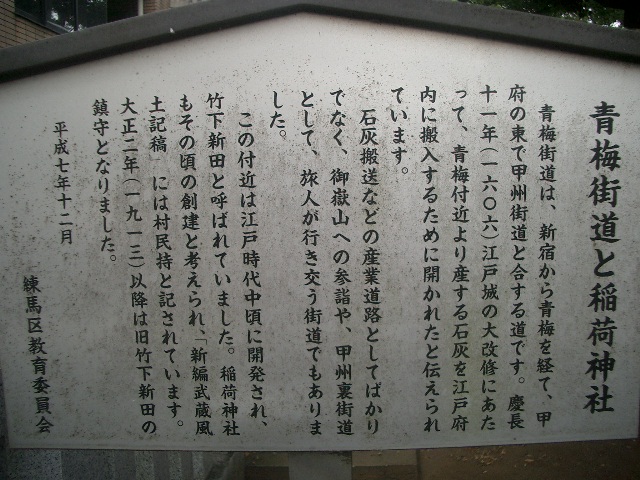 青梅街道と稲荷神社
青梅街道は、新宿から青梅を経て、甲
府の東で甲州街道と合する道です。慶長
十一年（一六〇六）江戸城の大改修にあた
って、青梅付近より産する石灰を江戸府
内に搬入するために開かれたと伝えられ
ています。
石灰搬送などの産業道路としてばかり
でなく、御嶽山への参詣や、甲州裏街道
として、旅人が行き交う街道でもありま
した。
この付近は江戸時代中頃に開発され、
竹下新田と呼ばれていました。稲荷神社
もその頃の創建と考えられ、「新編武蔵風
土記稿」には村民持と記されています。
大正二年（一九一三）以降は旧竹下新田の
鎮守となりました。
平成七年十二月
練馬区教育委員会